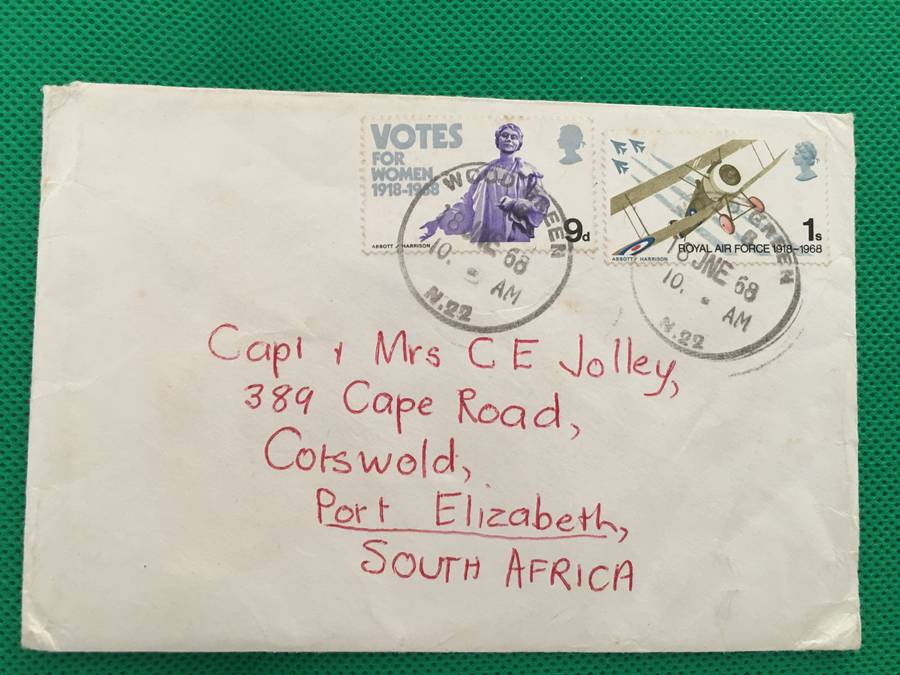 VOTES
FOR
WOMEN
1918-1968
9d
ABBOTT/HARRISON
1s
ROYAL AIR FORCE 1918-1968
ABBOTT/HARRISON
WOOD GREEN
8 JNE 68
10. AM
N.22
GREEN
8 JNE 68
10. AM
N.22
Capt & Mrs C E Jolley,
389 Cape Road,
Cotswold,
Port Elizabeth,
SOUTH AFRICA